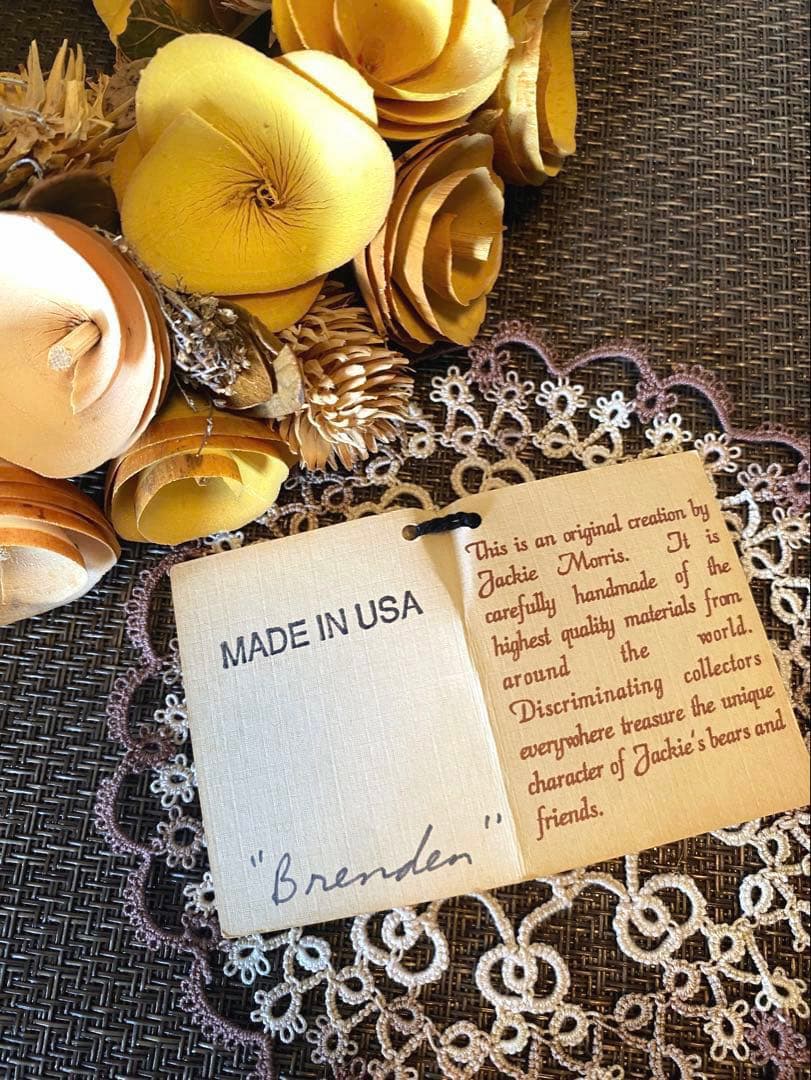 MADE IN USA
"Brenden"
This is an original creation by
Jackie Morris. It is
carefully handmade of the
highest quality materials from
around the world.
Discriminating collectors
everywhere treasure the unique
character of Jackie's bears and
friends.